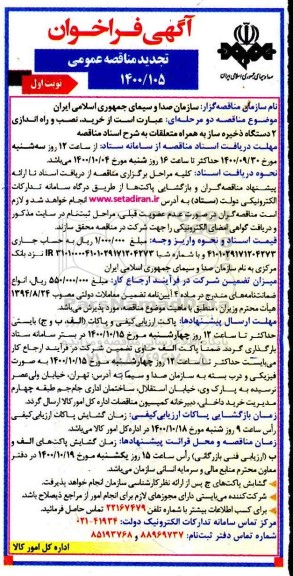 آگهی فراخوان
تجدید مناقصه عمومی
۱۴۰۰/۱۰۵
نوبت اول
صدا و سیمای جمهوری اسلامی ایران
نام سازمان مناقصه‌گزار: سازمان صدا و سیمای جمهوری اسلامی ایران
موضوع مناقصه دو مرحله‌ای: عبارت است از خرید، نصب و راه اندازی
۲ دستگاه ذخیره ساز به همراه متعلقات به شرح اسناد مناقصه
مهلت دریافت اسناد مناقصه از سامانه ستاد: از ساعت ۱۲ روز سه‌شنبه
مورخ ۱۴۰۰/۰۹/۳۰ حداکثر تا ساعت ۱۶ روز شنبه مورخ ۱۴۰۰/۱۰/۰۴ می‌باشد.
نحوه دریافت اسناد: کلیه مراحل برگزاری مناقصه از دریافت اسناد تا ارائه
پیشنهاد مناقصه‌گران و بازگشایی پاکت‌ها از طریق درگاه سامانه تدارکات
الکترونیکی دولت (ستاد) به آدرس www.setadiran.ir انجام خواهد شد و لازم
است مناقصه‌گران در صورت عدم عضویت قبلی، مراحل ثبت‌نام در سایت مذکور
و دریافت گواهی امضای الکترونیکی را جهت شرکت در مناقصه محقق سازند.
قیمت اسناد و نحوه واریز وجه: مبلغ ۱/۰۰۰/۰۰۰ ریال به حساب جاری
نزد بانک
مرکزی به نام سازمان صدا و سیمای جمهوری اسلامی ایران
میزان تضمین شرکت در فرآیند ارجاع کار: مبلغ ۵۵۰/۰۰۰/۰۰۰ ریال، انواع
ضمانت‌نامه‌های مندرج در ماده ۴ آیین‌نامه تضمین معاملات دولتی مصوب ۱۳۹۴/۸/۲۴
هیأت محترم وزیران، منطبق با ماهیت موضوع مناقصه، مورد پذیرش می‌باشد.
مهلت ارسال پیشنهادها: پاکت ارزیابی کیفی و پاکات (الف، ب و ج) بایستی
حداکثر تا ساعت ۱۲ روز چهارشنبه مورخ ۱۴۰۰/۱۰/۱۵ در بستر سامانه ستاد
بارگذاری گردد. ضمناً پاکت الف حاوی تضمین شرکت در فرآیند ارجاع کار
می‌بایست حداکثر تا ساعت ۱۲ روز چهارشنبه مورخ ۱۴۰۰/۱۰/۱۵ به صورت
فیزیکی و دربسته به سازمان صدا و سیما به آدرس: تهران، خیابان ولی‌عصر
نرسیده به پارک وی، خیابان استقلال، ساختمان اداری جام‌جم طبقه چهارم
مدیریت خرید داخلی، دبیرخانه کمیسیون مناقصات اداره کل امور کالا ارسال گردد.
زمان بازگشایی پاکات ارزیابی‌کیفی: زمان گشایش پاکات ارزیابی‌کیفی
رأس ساعت ۹ روز شنبه مورخ ۱۴۰۰/۱۰/۱۸ در اداره کل امور کالا می‌باشد.
زمان مناقصه و محل قرائت پیشنهادها: زمان گشایش پاکت‌های الف و
ب (ارزیابی فنی بازرگانی) رأس ساعت ۱۵ روز یکشنبه مورخ ۱۴۰۰/۱۰/۱۹ در دفتر
معاون محترم منابع مالی و سرمایه انسانی سازمان می‌باشد.
گشایش پاکت‌های ج پس از ارائه نظر کارشناسی سازمان انجام خواهد پذیرفت.
شرکت‌کننده می‌بایستی دارای مجوزهای لازم برای انجام امور از مراجع ذیصلاح باشد.
برای کسب اطلاعات بیشتر با شماره تلفن ۲۲۱۶۷۴۷۹ تماس حاصل فرمائید.
مرکز تماس سامانه تدارکات الکترونیک دولت: ۴۱۹۳۴-۰۲۱
شماره تماس دفتر ثبت‌نام: ۸۸۹۶۹۷۳۷ و ۸۵۱۹۳۷۶۸
اداره کل امور کالا